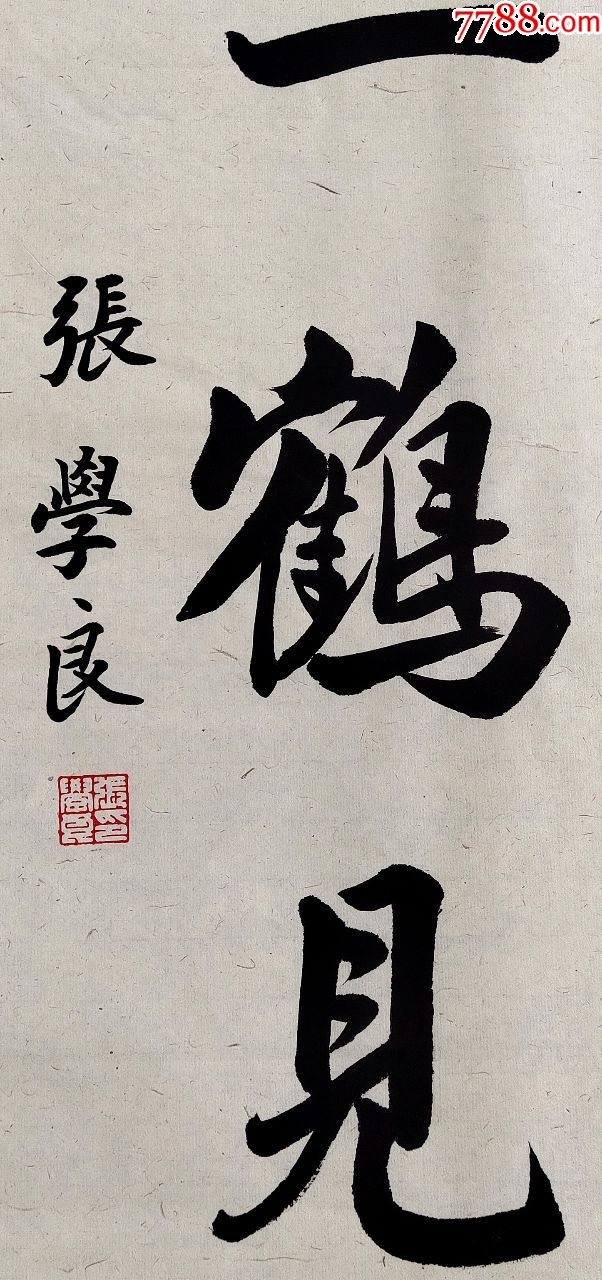 7788.com
一鶴見
張學良
張學良印